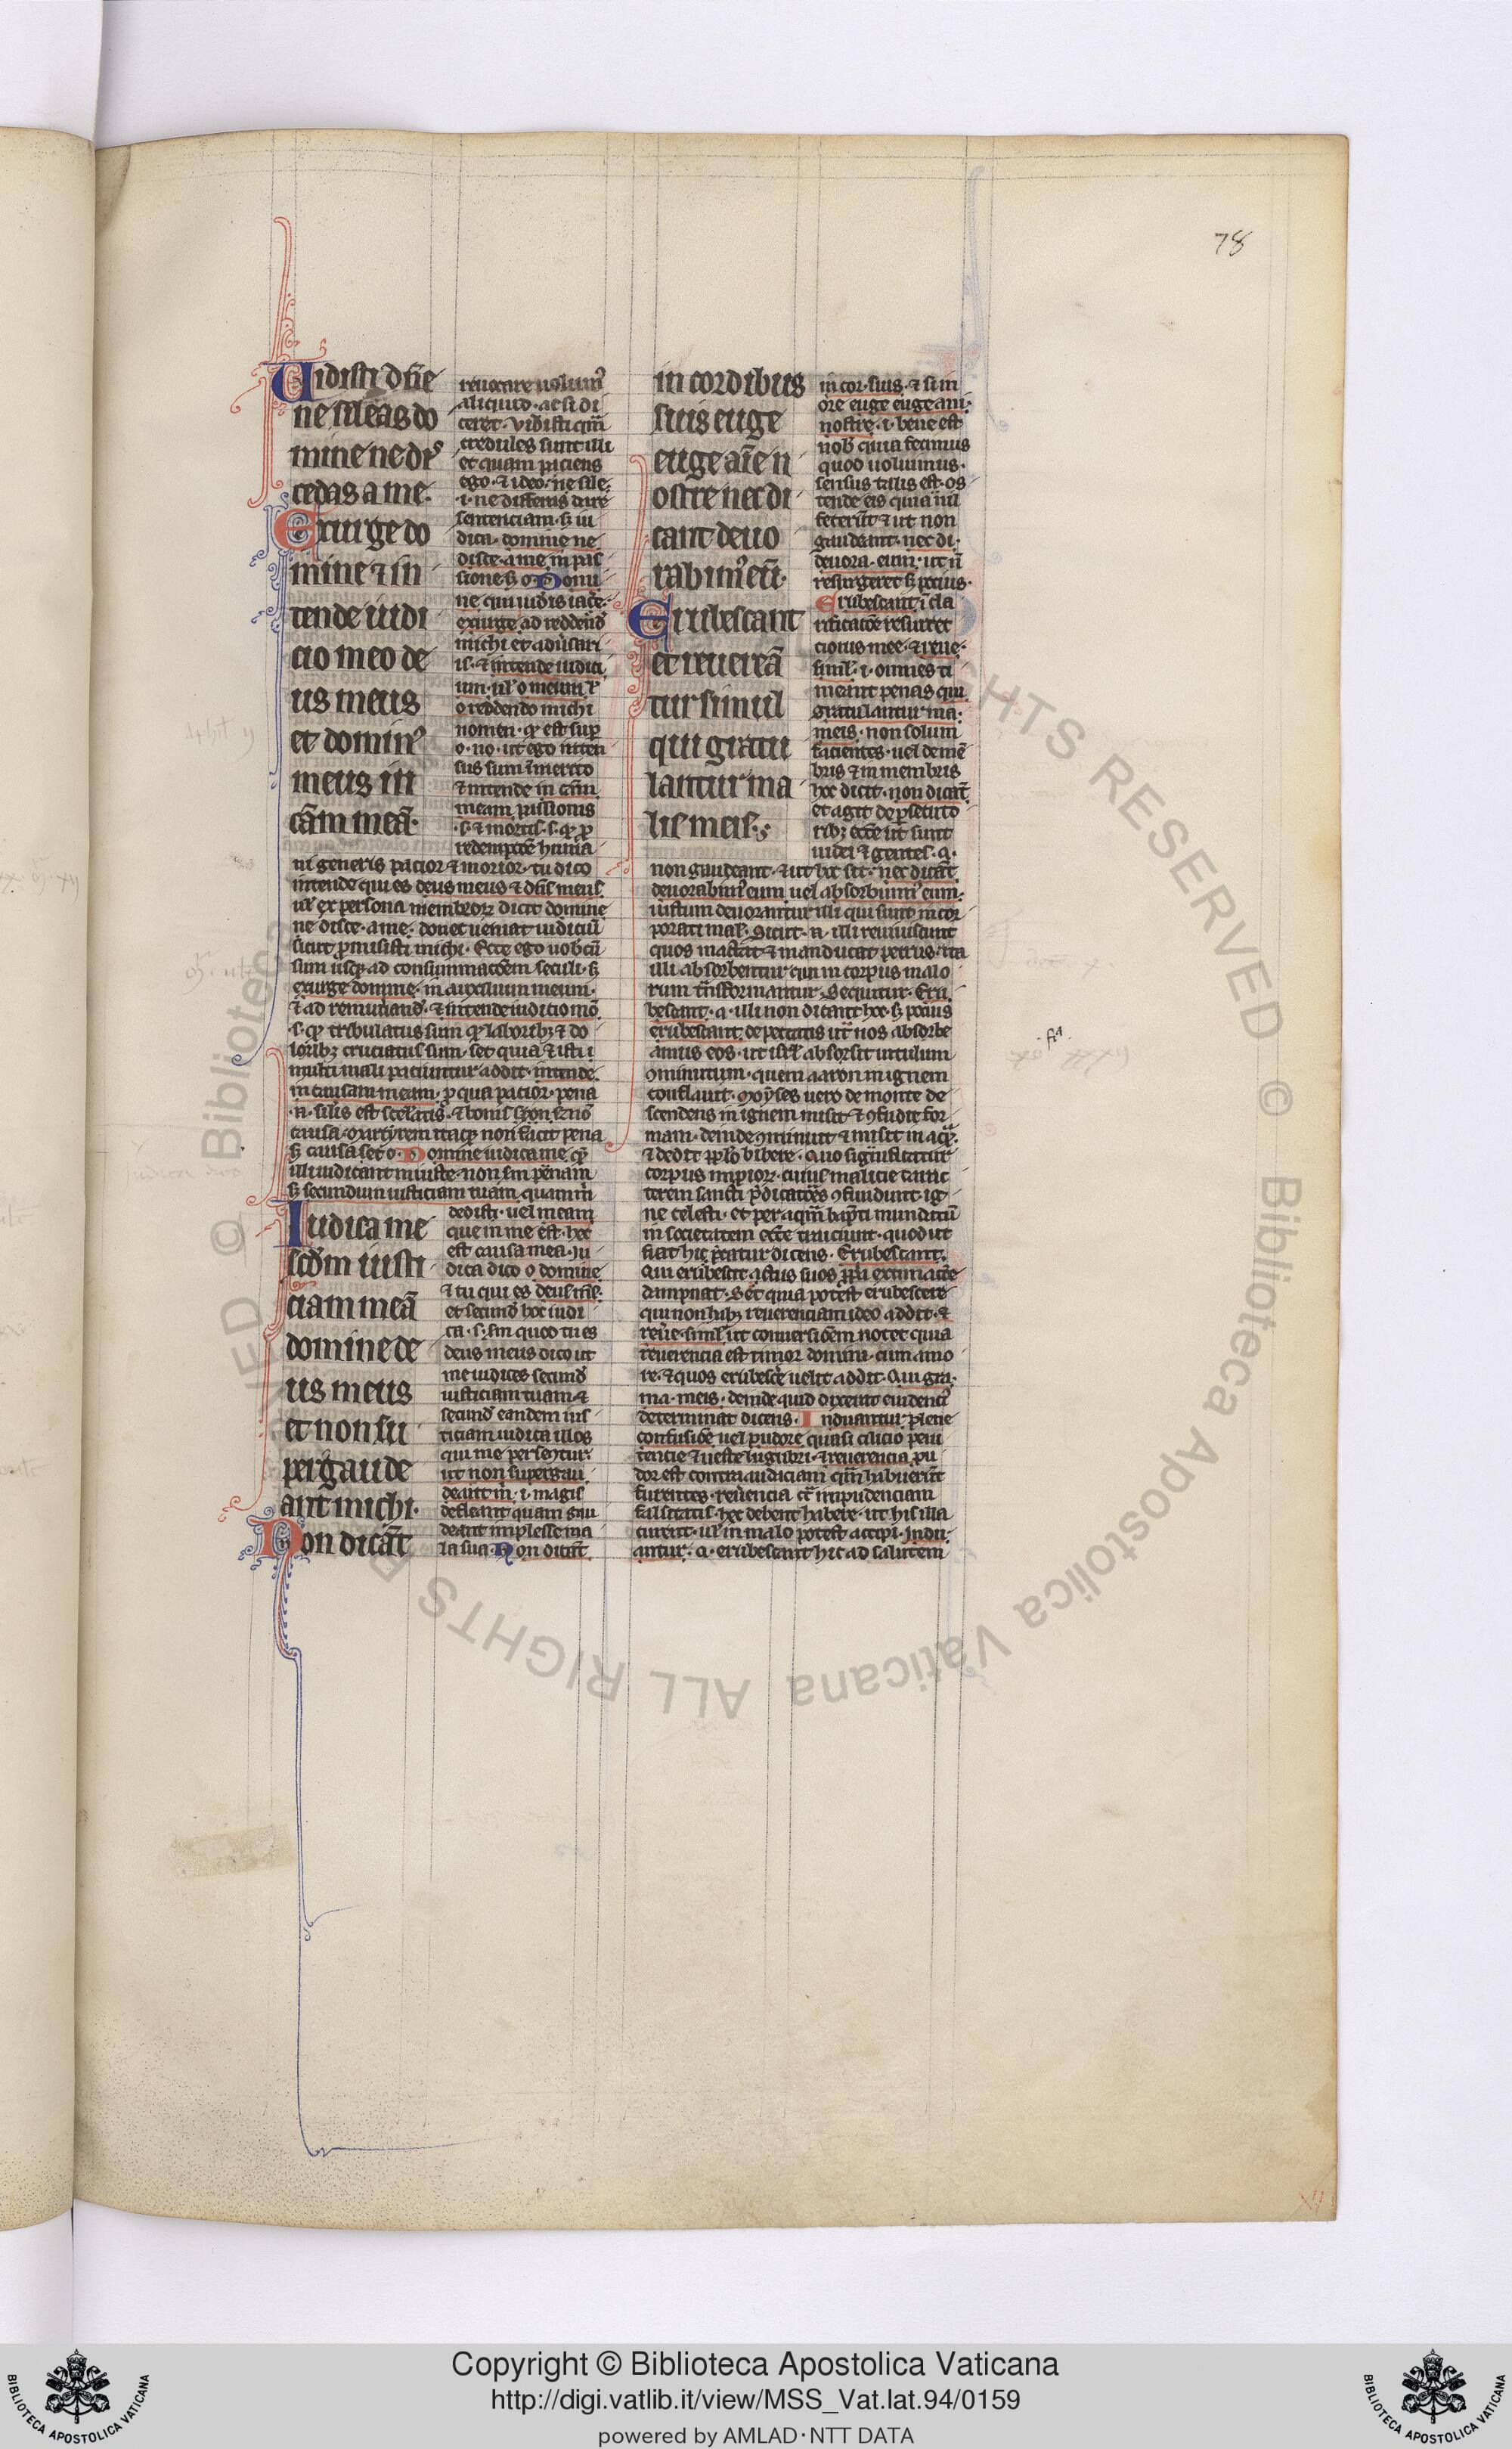 78
Uidisti dñe
ne sileas do
mine ne di
cedas a me.
Exurge do
mine & in
tende iudi
cio meo de
us meus
et domin9
meus in
cãm meã.
reuocare uolum9
aliquid. ac si di
ceret. vidisti qm̃
credules sunt illi
et quam paciens
ego. & ideo. ne sile.
.i. ne differas dare
sentenciam. s; iu
dica. domine ne
disce. a me in pas
sione. s; o Domi
ne qui uideris iace.
exurge ad reddend
michi et aduersari
is. & intende iudici
um. ul o meum
o reddendo michi
nomen. q est sup
o. no. ut ego inten
sus sum inmerito
& intende in cãm
meam passionis
.s. & mortis. s. q p
redempcõe humã
ni generis pacior & morior. tu dico
intende qui es deus meus & dñs meus
ul ex persona membror dicit domine
ne disce. a me. donec ueniat iudiciũ
sicut pmisisti michi. Ecce ego uobcũ
sum usq ad consummacõem seculi. s;
exurge domine. in auxilium meum.
& ad remunand. & intende iudicio mõ
.s. q tribulatus sum q laborib; & do
lorib; cruciatus sum. set quia & isti i
multi mali paciuntur addit. intende
in causam meam. p qua pacior. pena
.n. silis est sceleratis. & bonis
causa. Martyrem itaq non facit pena
s; causa. set o. Domine iudica me. q
illi iudicant iniuste. non sm penam
s; secundum iusticiam tuam quam m
Iudica me
scdm iusti
ciam meã
domine de
us meus
et non su
pergaude
ant michi.
Non dicãt
dedisti. uel meam
que in me est. hec
est causa mea. Iu
dica dico o domine
& tu qui es deus ms.
et secund hoc iudi
ca. s. sm quod tu es
deus meus dico ut
me iudices secund
iusticiam tuam &
secund eandem ius
ticiam iudica illos
qui me persequntur.
ut non supergau
deant m. i. magis
defleant quam gau
deant implesse ma
la sua. Non dicãt
in cordibus
suis euge
euge aĩe n
ostre nec di
cant deuo
rabim9 eũ.
Erubescant
et reuereã
tur simul
qui gratu
lantur ma
lis meis.
in cor. suis. & si in
ore euge euge ani.
nostre. i. bene est
nob quia fecimus
quod uoluimus.
sensus talis est. os
tende eis quia nil
fecerũt & ut non
gaudeant. nec di.
deuora. eum. ut ñ
resurgeret s; pocius.
Erubescant i cla
rificacõe resurrec
cionis mee. & reue.
simul. i. omnes ti
meant penas qui
gratulantur ma.
meis. non solum
facientes. uel de mẽ
bris & in membris
hoc dicit. non dicãt
et agit de psecuto
rib; ecce ut sunt
iudei & gentes. q.
non gaudeant. & ut hoc sit. nec dicãt
deuorabim9 eum uel absorbuim9 eum.
iustum deuorantur illi qui sunt in cor
porati mal. Sicut. n. illi reuiuiscunt
quos mactat & manducat petrus. ita
illi absorbentur qui in corpus malo
rum tnsformantur. Sequitur. Eru
bescant. q. illi non dicant hoc. s; pocius
erubescant. de peccatis ut nos absorbe
amus eos. ut isrl absorsit uitulum
ominutum. quem aaron in ignem
conflauit. Moyses uero de monte de
scendens in ignem misit & 9fudit for
mam. deinde 9minuit & misit in aq.
& dedit pplo bibere. Quo significatur
corpus impior. cuius malicie carac
terem sancti pdicatores 9fundunt. ig
ne celesti. et per aqm bapti mundatũ
in societatem ecce traiciunt. quod ut
fiat hic precatur dicens. Erubescant.
Qui erubescit actus suos ppli extimacõe
dampnat. Set quia potest erubescere
qui non hab; reuerenciam ideo addit. &
reue. simul. ut conuersiõem notet quia
reuerencia est timor domini. cum amo
re. & quos erubesce uelit addit. Qui gra.
ma. meis. deinde quid dixerit euidenci9
determinat dicens. Induantur. plene
confusiõe uel pudore quasi cilicio peni
tencie & ueste lugubri. & reuerencia pu
dor est contra audaciam qm habuerũt
furentes. reuencia ct impudenciam
falsitatis. hec debent habere. ut his illa
curent. ul in malo potest accipi. Indu
antur. q. erubescant hic ad salutem
Copyright © Biblioteca Apostolica Vaticana
http://digi.vatlib.it/view/MSS_Vat.lat.94/0159
powered by AMLAD·NTT DATA
BIBLIOTECA APOSTOLICA VATICANA
BIBLIOTECA APOSTOLICA VATICANA